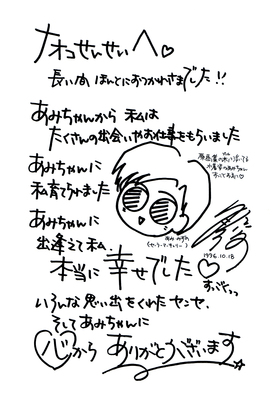 ナオコせんせいへ♡
長い間 ほんとにおつかれさまでした!!
あみちゃんから 私は
たくさんの出会いやお仕事をもらいました
あみちゃんに
私育てられました
あみちゃんに
出逢えて私
本当に幸せでした♡
1996.10.18
いろんな思い出をくれたセンセ、
そしてあみちゃんに
心から ありがとうございます